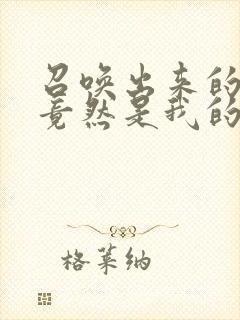 召唤出来的
竟然是我的
格莱纳